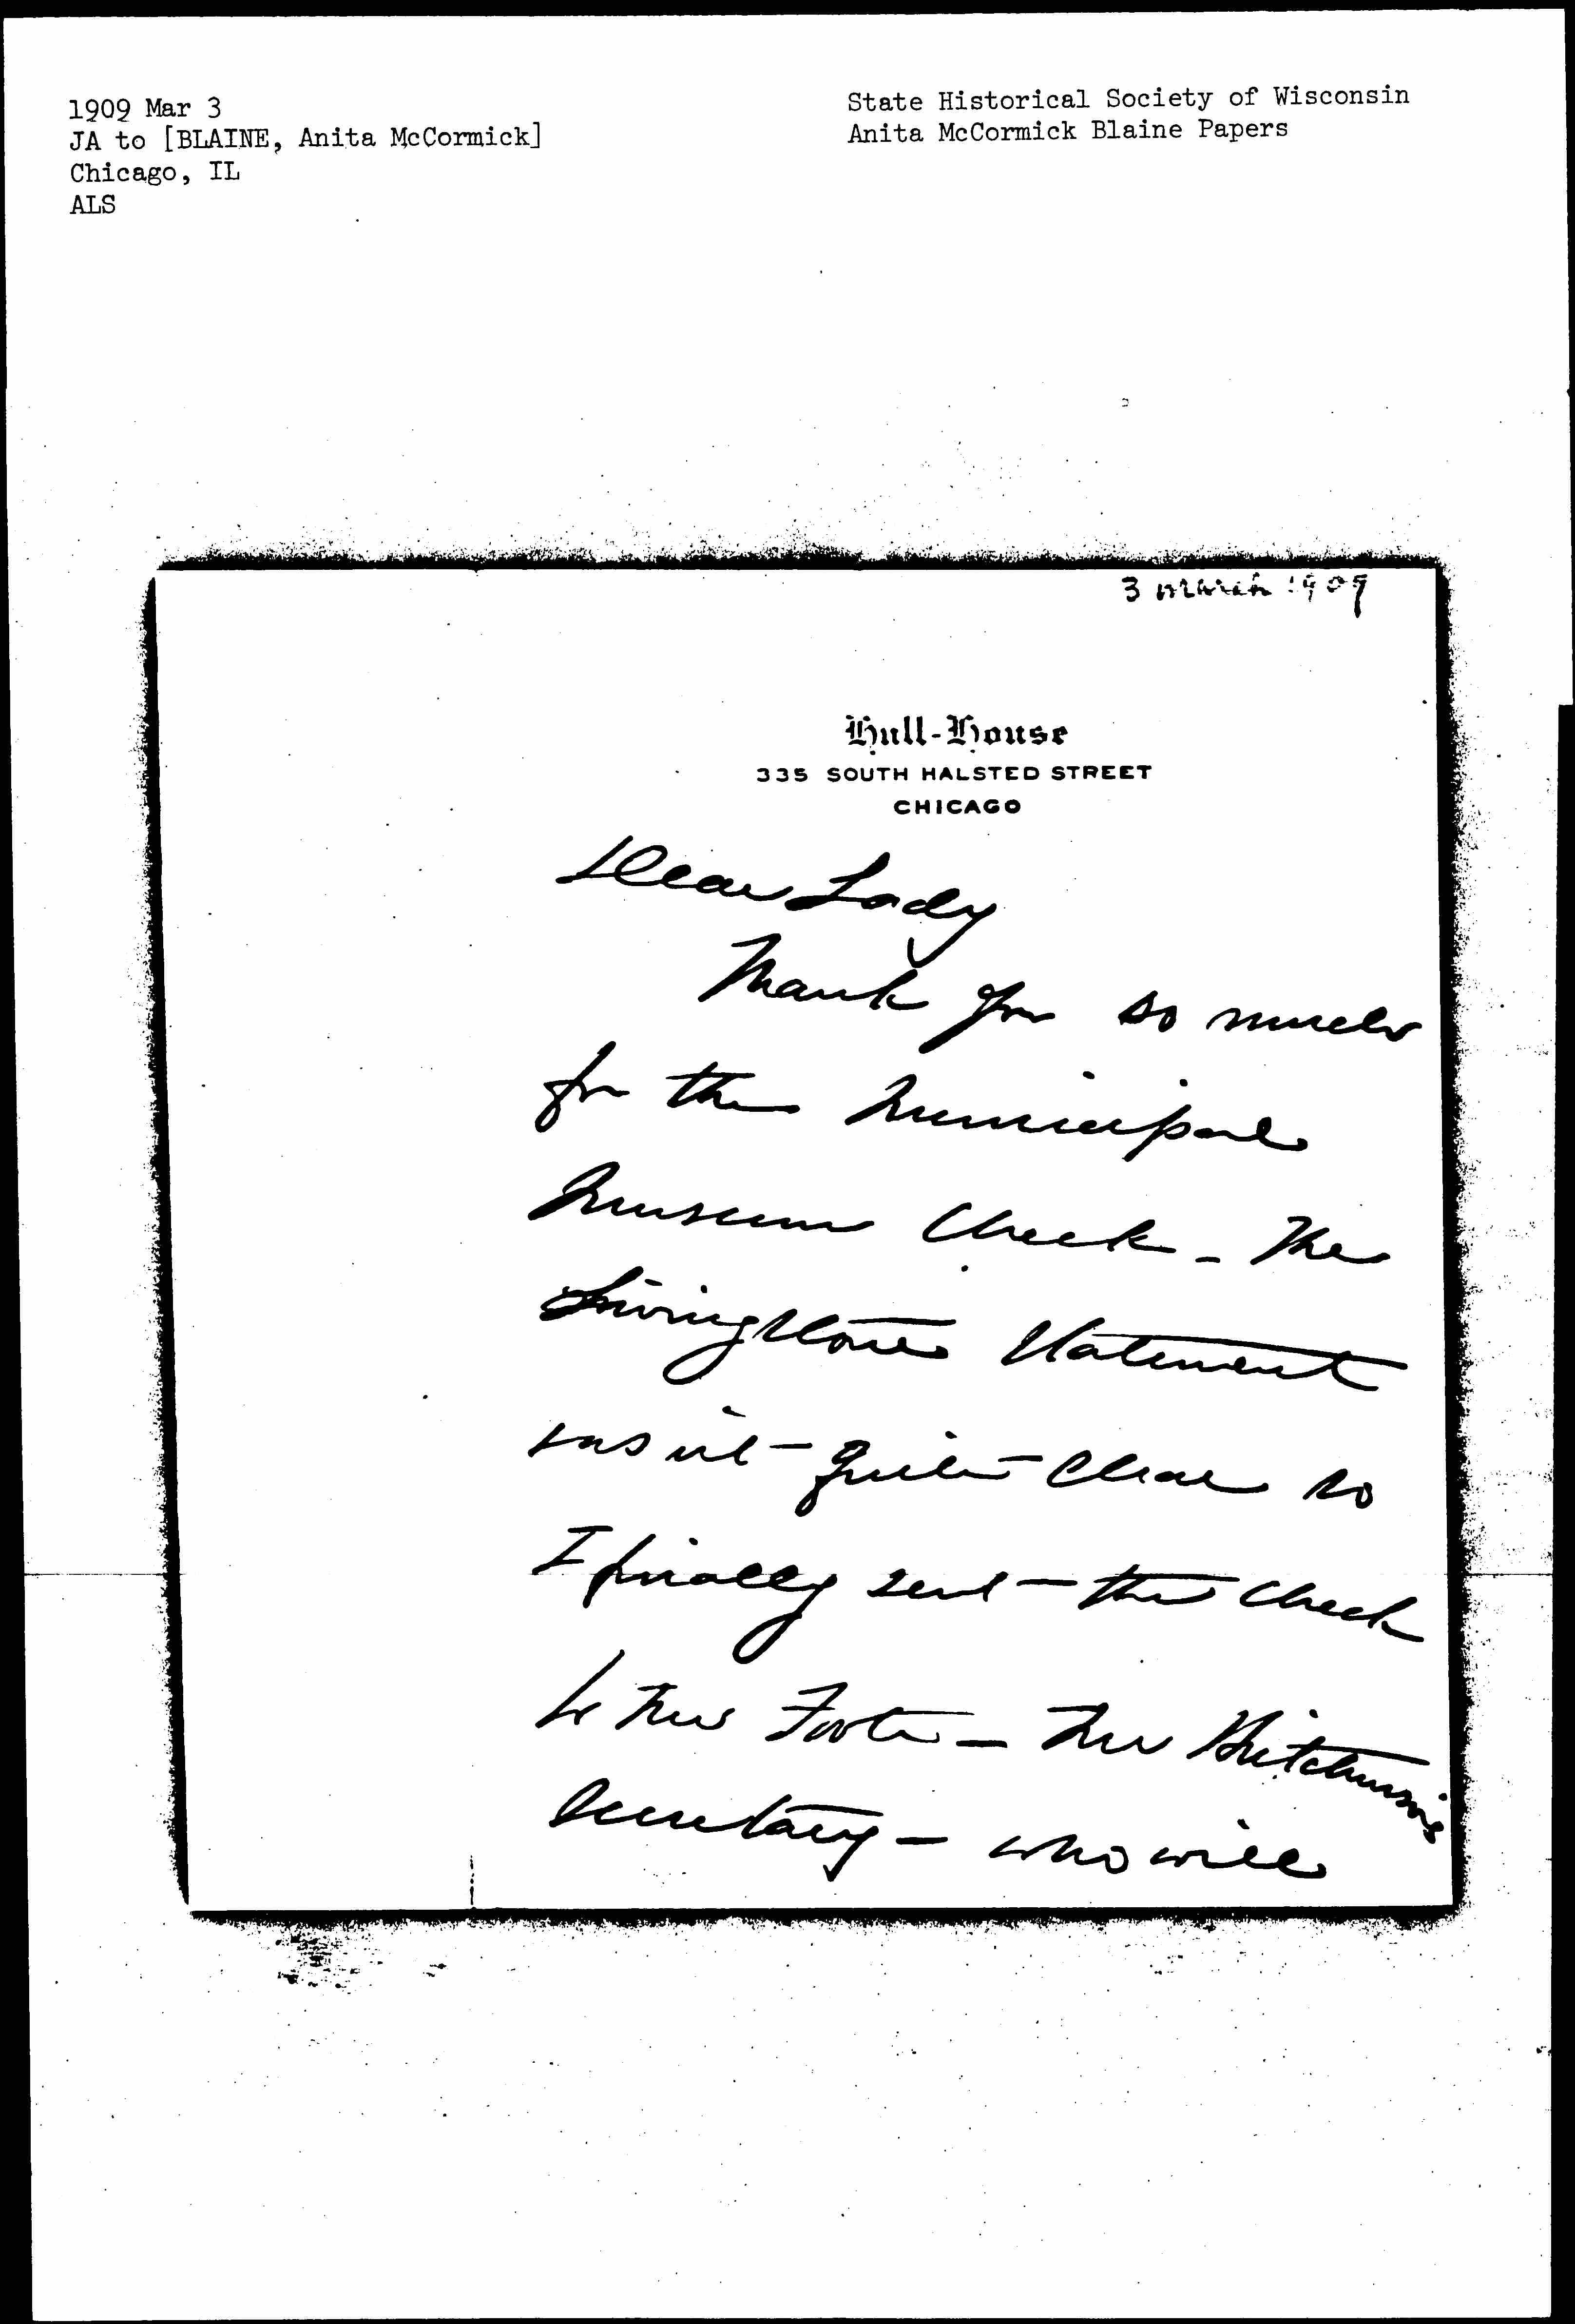 1909 Mar 3
JA to [BLAINE, Anita McCormick]
Chicago, IL
ALS
State Historical Society of Wisconsin
Anita McCormick Blaine Papers
3 March 1909
Hull-House
335 SOUTH HALSTED STREET
CHICAGO
Dear Lady
Thank you so much
for the Municipal
Museum Check - The
Livingstone Statement
wasn't quite clear so
I finally sent the check
to Foote - Mr Hutchinson's
Secretary - who will